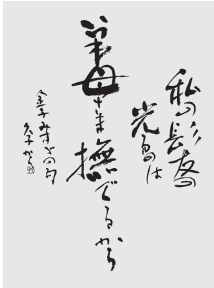 私の髪の
光るのは
いつも母さま撫でるから
金子みすゞの句